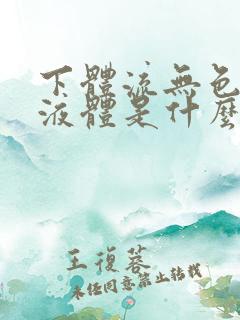 下體流無色
液體是什麼
王復蓉
未任同意禁止转载